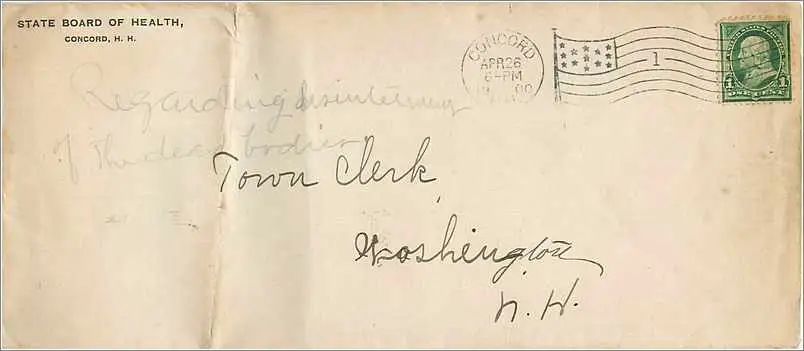 STATE BOARD OF HEALTH,
CONCORD, H. H.
CONCORD
APR 26
6-PM
1
1 1
ONE CENT
Regarding disinterment
of the dead bodies
Town Clerk
Washington
N. H.